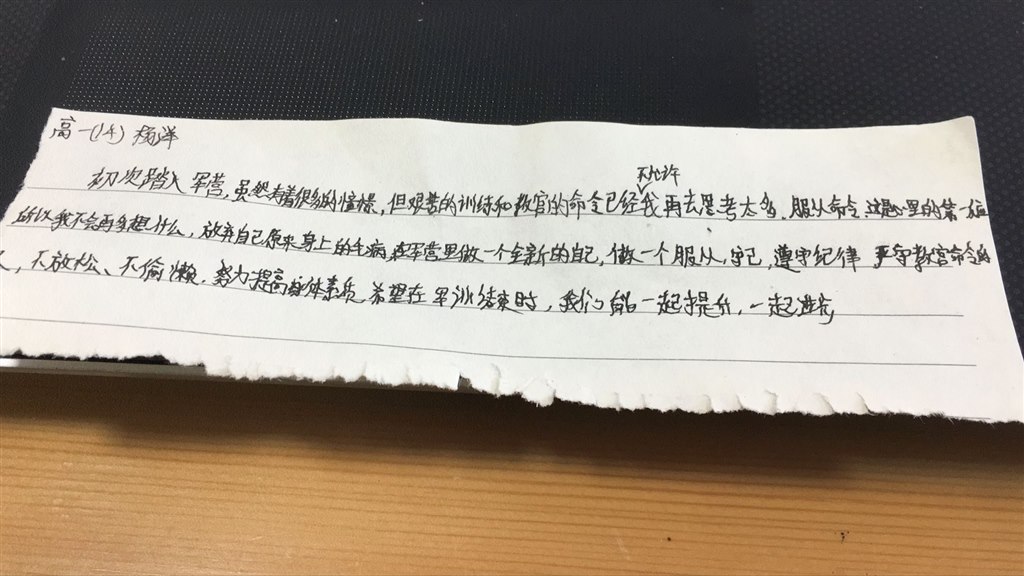 高一(14) 杨洋
初次踏入军营，虽然有着很多的憧憬，但艰苦的训练和教官的命令已经不允许我再去思考太多，服从命令，这是心里的第一位
所以我不会再多想什么，放弃自己原来身上的毛病，在军营里做一个全新的自己，做一个服从，守己，遵守纪律 严守教官命令的
人，不放松、不偷懒，努力提高身体素质，希望在军训结束时，我们能一起提升，一起进步